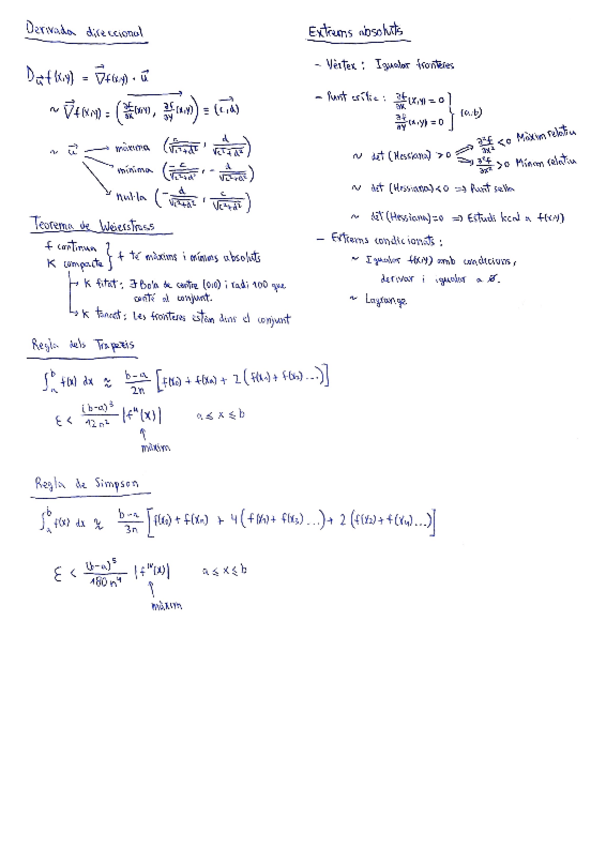 Derivada direccional
D_u⃗ f(x,y) = ∇⃗f(x,y) · u⃗
~ ∇⃗f(x,y) = (∂f/∂x (x,y), ∂f/∂y (x,y)) ≡ (c,d)
~ u⃗ → màxima (c/√(c²+d²), d/√(c²+d²))
→ mínima (-c/√(c²+d²), -d/√(c²+d²))
→ nul·la (-d/√(c²+d²), c/√(c²+d²))
Teorema de Weierstrass
f contínua
K compacte } f té màxims i mínims absoluts
→ K fitat: ∃ Bola de centre (0,0) i radi 100 que
conté al conjunt.
→ K tancat: Les fronteres estàn dins el conjunt
Regla dels Trapezis
∫_a^b f(x) dx ≈ (b-a)/2n [f(x₀) + f(xₙ) + 2(f(x₁) + f(x₂) ...)]
ε < (b-a)³/12n² |f''(x)| a ≤ x ≤ b
↑
màxim
Regla de Simpson
∫_a^b f(x) dx ≈ (b-a)/3n [f(x₀) + f(xₙ) + 4(f(x₁) + f(x₃) ...) + 2(f(x₂) + f(x₄) ...)]
ε < (b-a)⁵/180n⁴ |f^IV(x)| a ≤ x ≤ b
↑
màxim
Extrems absoluts
- Vèrtex: Igualar fronteres
- Punt crític: ∂f/∂x (x,y) = 0
∂f/∂y (x,y) = 0 } (a,b)
~ det (Hessiana) > 0 ⇒ ∂²f/∂x² < 0 Màxim relatiu
⇒ ∂²f/∂x² > 0 Mínim relatiu
~ det (Hessiana) < 0 ⇒ Punt sella
~ det (Hessiana) = 0 ⇒ Estudi local a f(x,y)
- Extrems condicionats:
~ Igualar f(x,y) amb condicions,
derivar i igualar a 0.
~ Lagrange